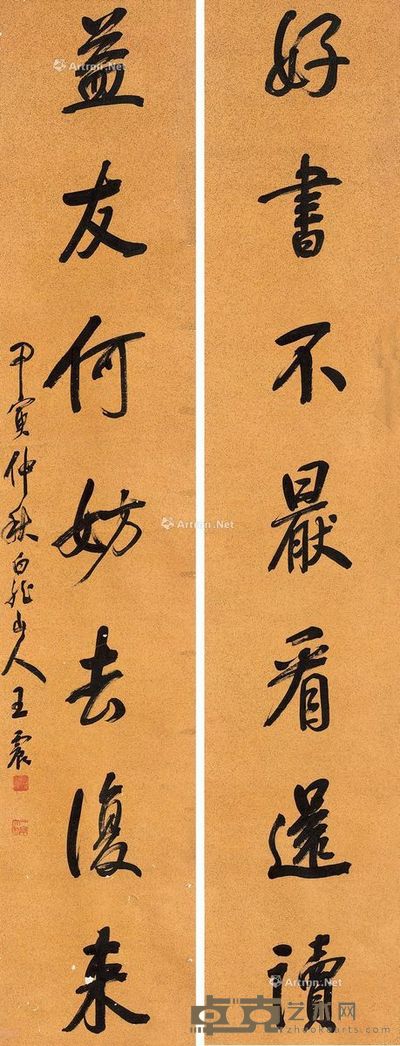 好書不厭看還讀
益友何妨去復來
甲寅仲秋白龍山人王震
Artron.Net
Artron.Net
Artron.Net
Artron.Net
卓克艺术网
zhuokearts.com